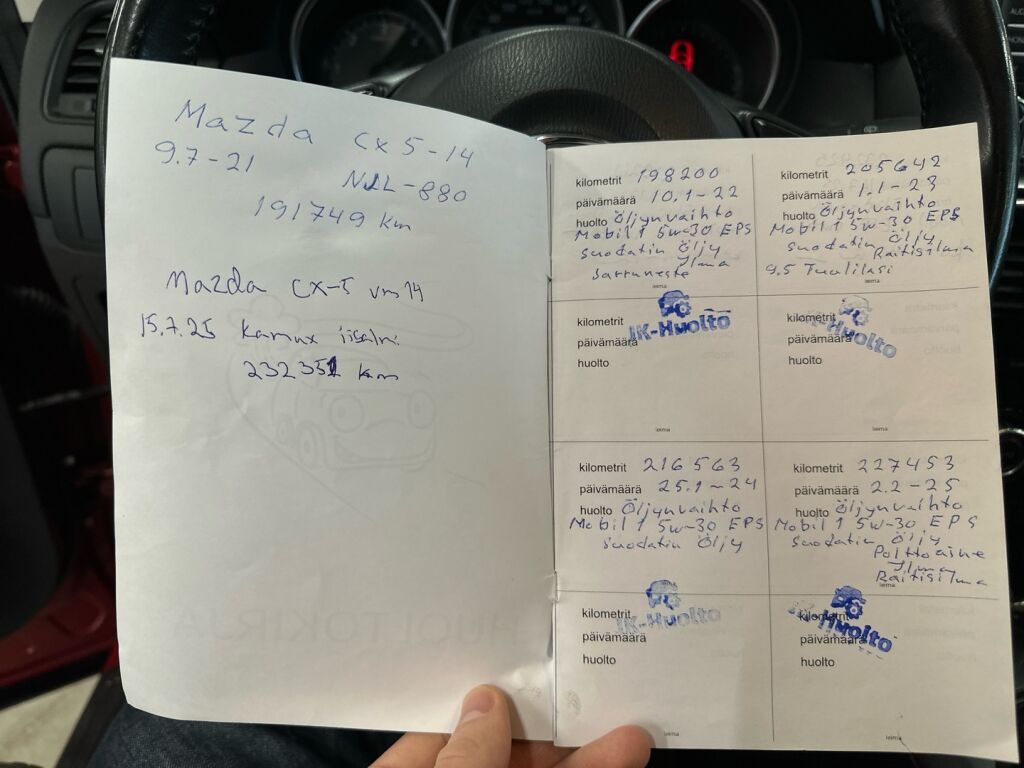 Mazda CX5-14
9.7-21
NLL-880
191749 km
Mazda CX-5 vm 14
15.7.25 Kamux iisalmi
232351 km
kilometrit 198200
päivämäärä 10.1-22
huolto Öljynvaihto
Mobil 1 5w-30 EPS
suodatin Öljy
Ilma
Jarruneste
leima
IK-Huolto
kilometrit 205642
päivämäärä 1.1-23
huolto Öljynvaihto
Mobil 1 5w-30 EPS
suodatin Öljy
Raitisilma
9.5 Tuulilasi
leima
IK-Huolto
kilometrit
päivämäärä
huolto
leima
kilometrit
päivämäärä
huolto
leima
kilometrit 216563
päivämäärä 25.1-24
huolto Öljynvaihto
Mobil 1 5w-30 EPS
suodatin Öljy
IK-Huolto
kilometrit 227453
päivämäärä 2.2-25
huolto Öljynvaihto
Mobil 1 5w-30 EPS
suodatin Öljy
Polttoaine
Ilma
Raitisilma
leima
Huolto
kilometrit
päivämäärä
huolto
leima
kilometrit
päivämäärä
huolto
leima
HUOLTOKIRJA